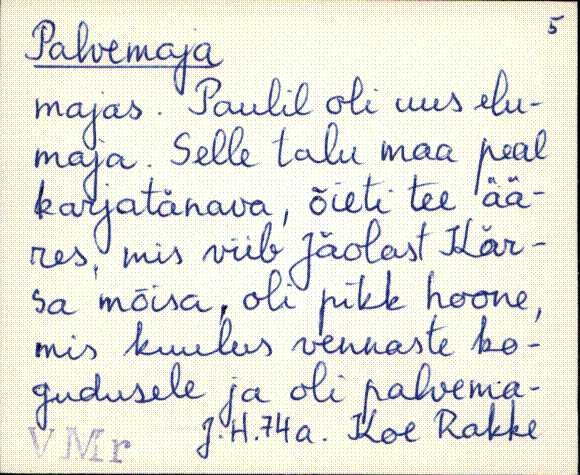 5
Palvemaja
majas. Paulil oli uus elu-
maja. Selle talu maa peal
karjatänava, õieti tee ää-
res, mis viib Jäolast Kär-
sa mõisa, oli pikk hoone,
mis kuulus vennaste ko-
gudusele ja oli palvema-
J.H.74a. Koe Rakke
VMr